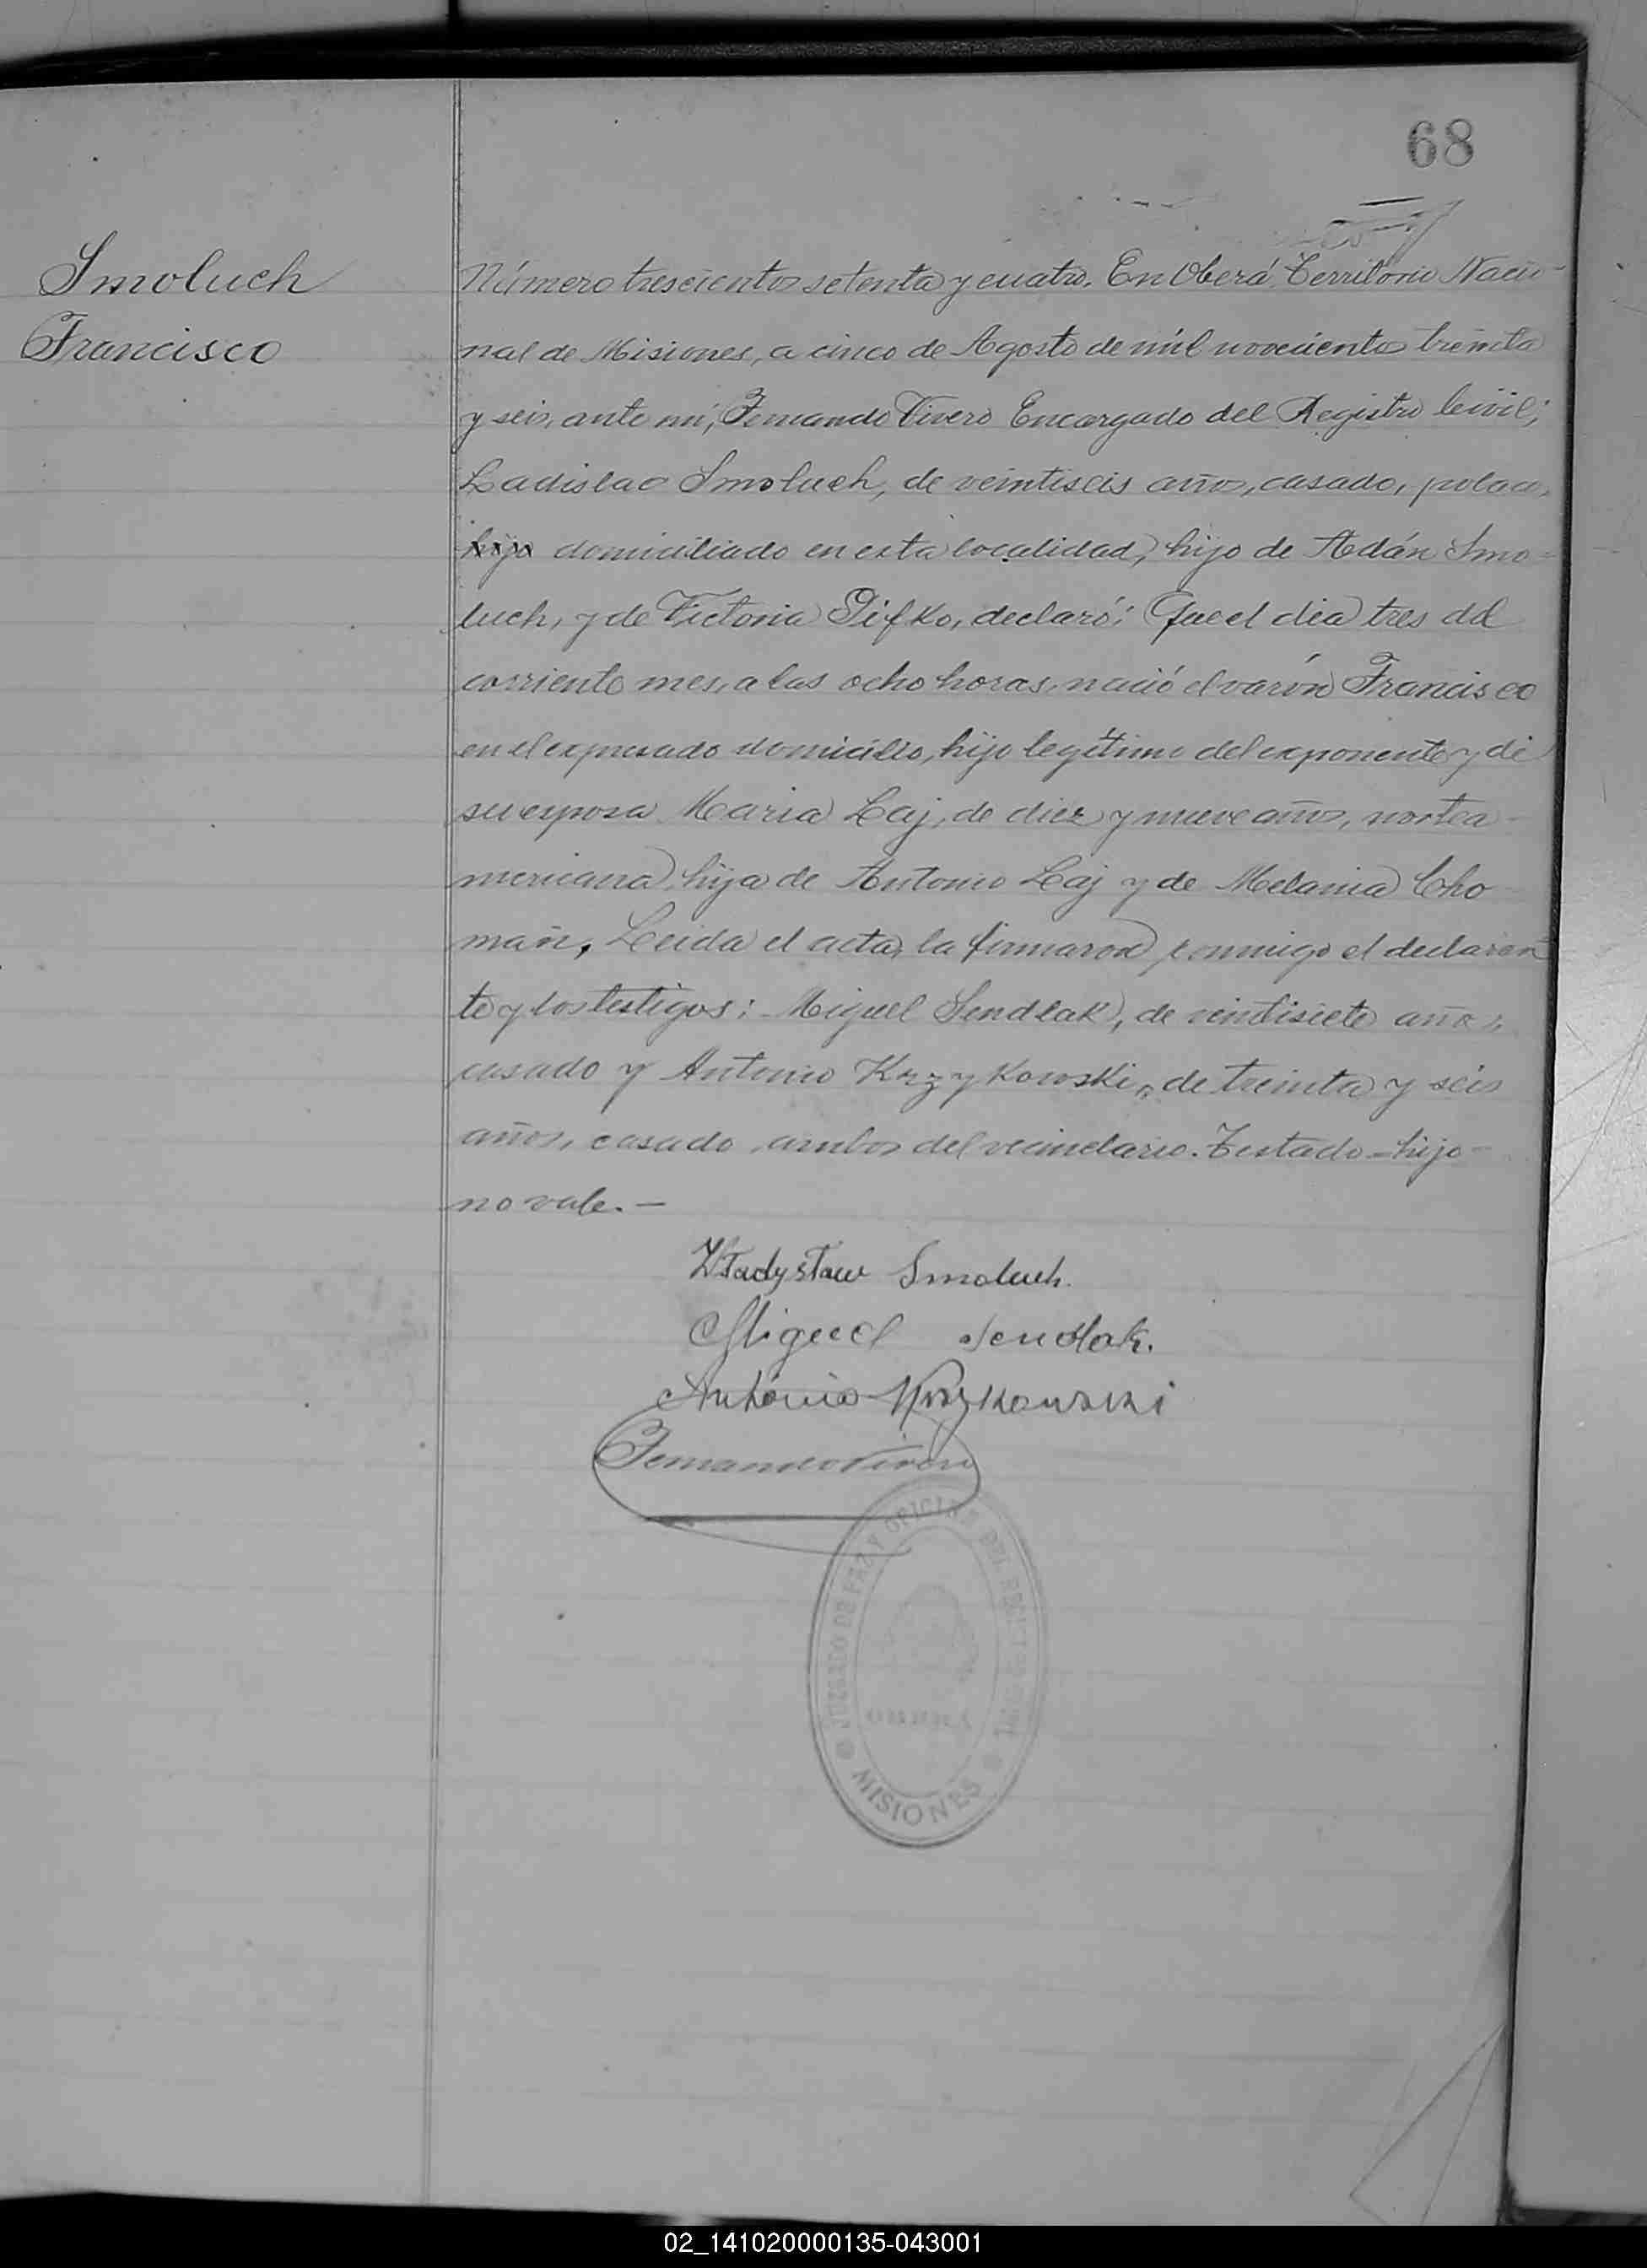 68
Smoluch
Francisco
Número trescientos setenta y cuatro. En Oberá Territorio Nacio-
nal de Misiones, a cinco de Agosto de mil novecientos treinta
y seis, ante mí, Fernando Vivero Encargado del Registro Civil;
Ladislao Smoluch, de veintiseis años, casado, polaco,
hijo domiciliado en esta localidad, hijo de Adán Smo-
luch, y de Victoria Pifko, declaró: Que el día tres del
corriente mes, a las ocho horas, nació el varón Francisco
en el expresado domicilio, hijo legítimo del exponente y de
su esposa Maria Laj, de diez y nueve años, nortea-
mericana, hija de Antonio Laj y de Melania Cho-
mañ, Leida el acta, la firmaron conmigo el declaran
te y los testigos: Miguel Sendlak, de veintisiete años,
casado y Antonio Krzykowski, de treinta y seis
años, casado, ambos del vecindario. Testado = hijo -
no vale. —
Władysław Smoluch.
Miguel Sendlak.
António Krzykowski
Fernando Vivero
JUZGADO DE PAZ Y OFICINA DEL REGISTRO CIVIL
OBERÁ
MISIONES
02_141020000135-043001